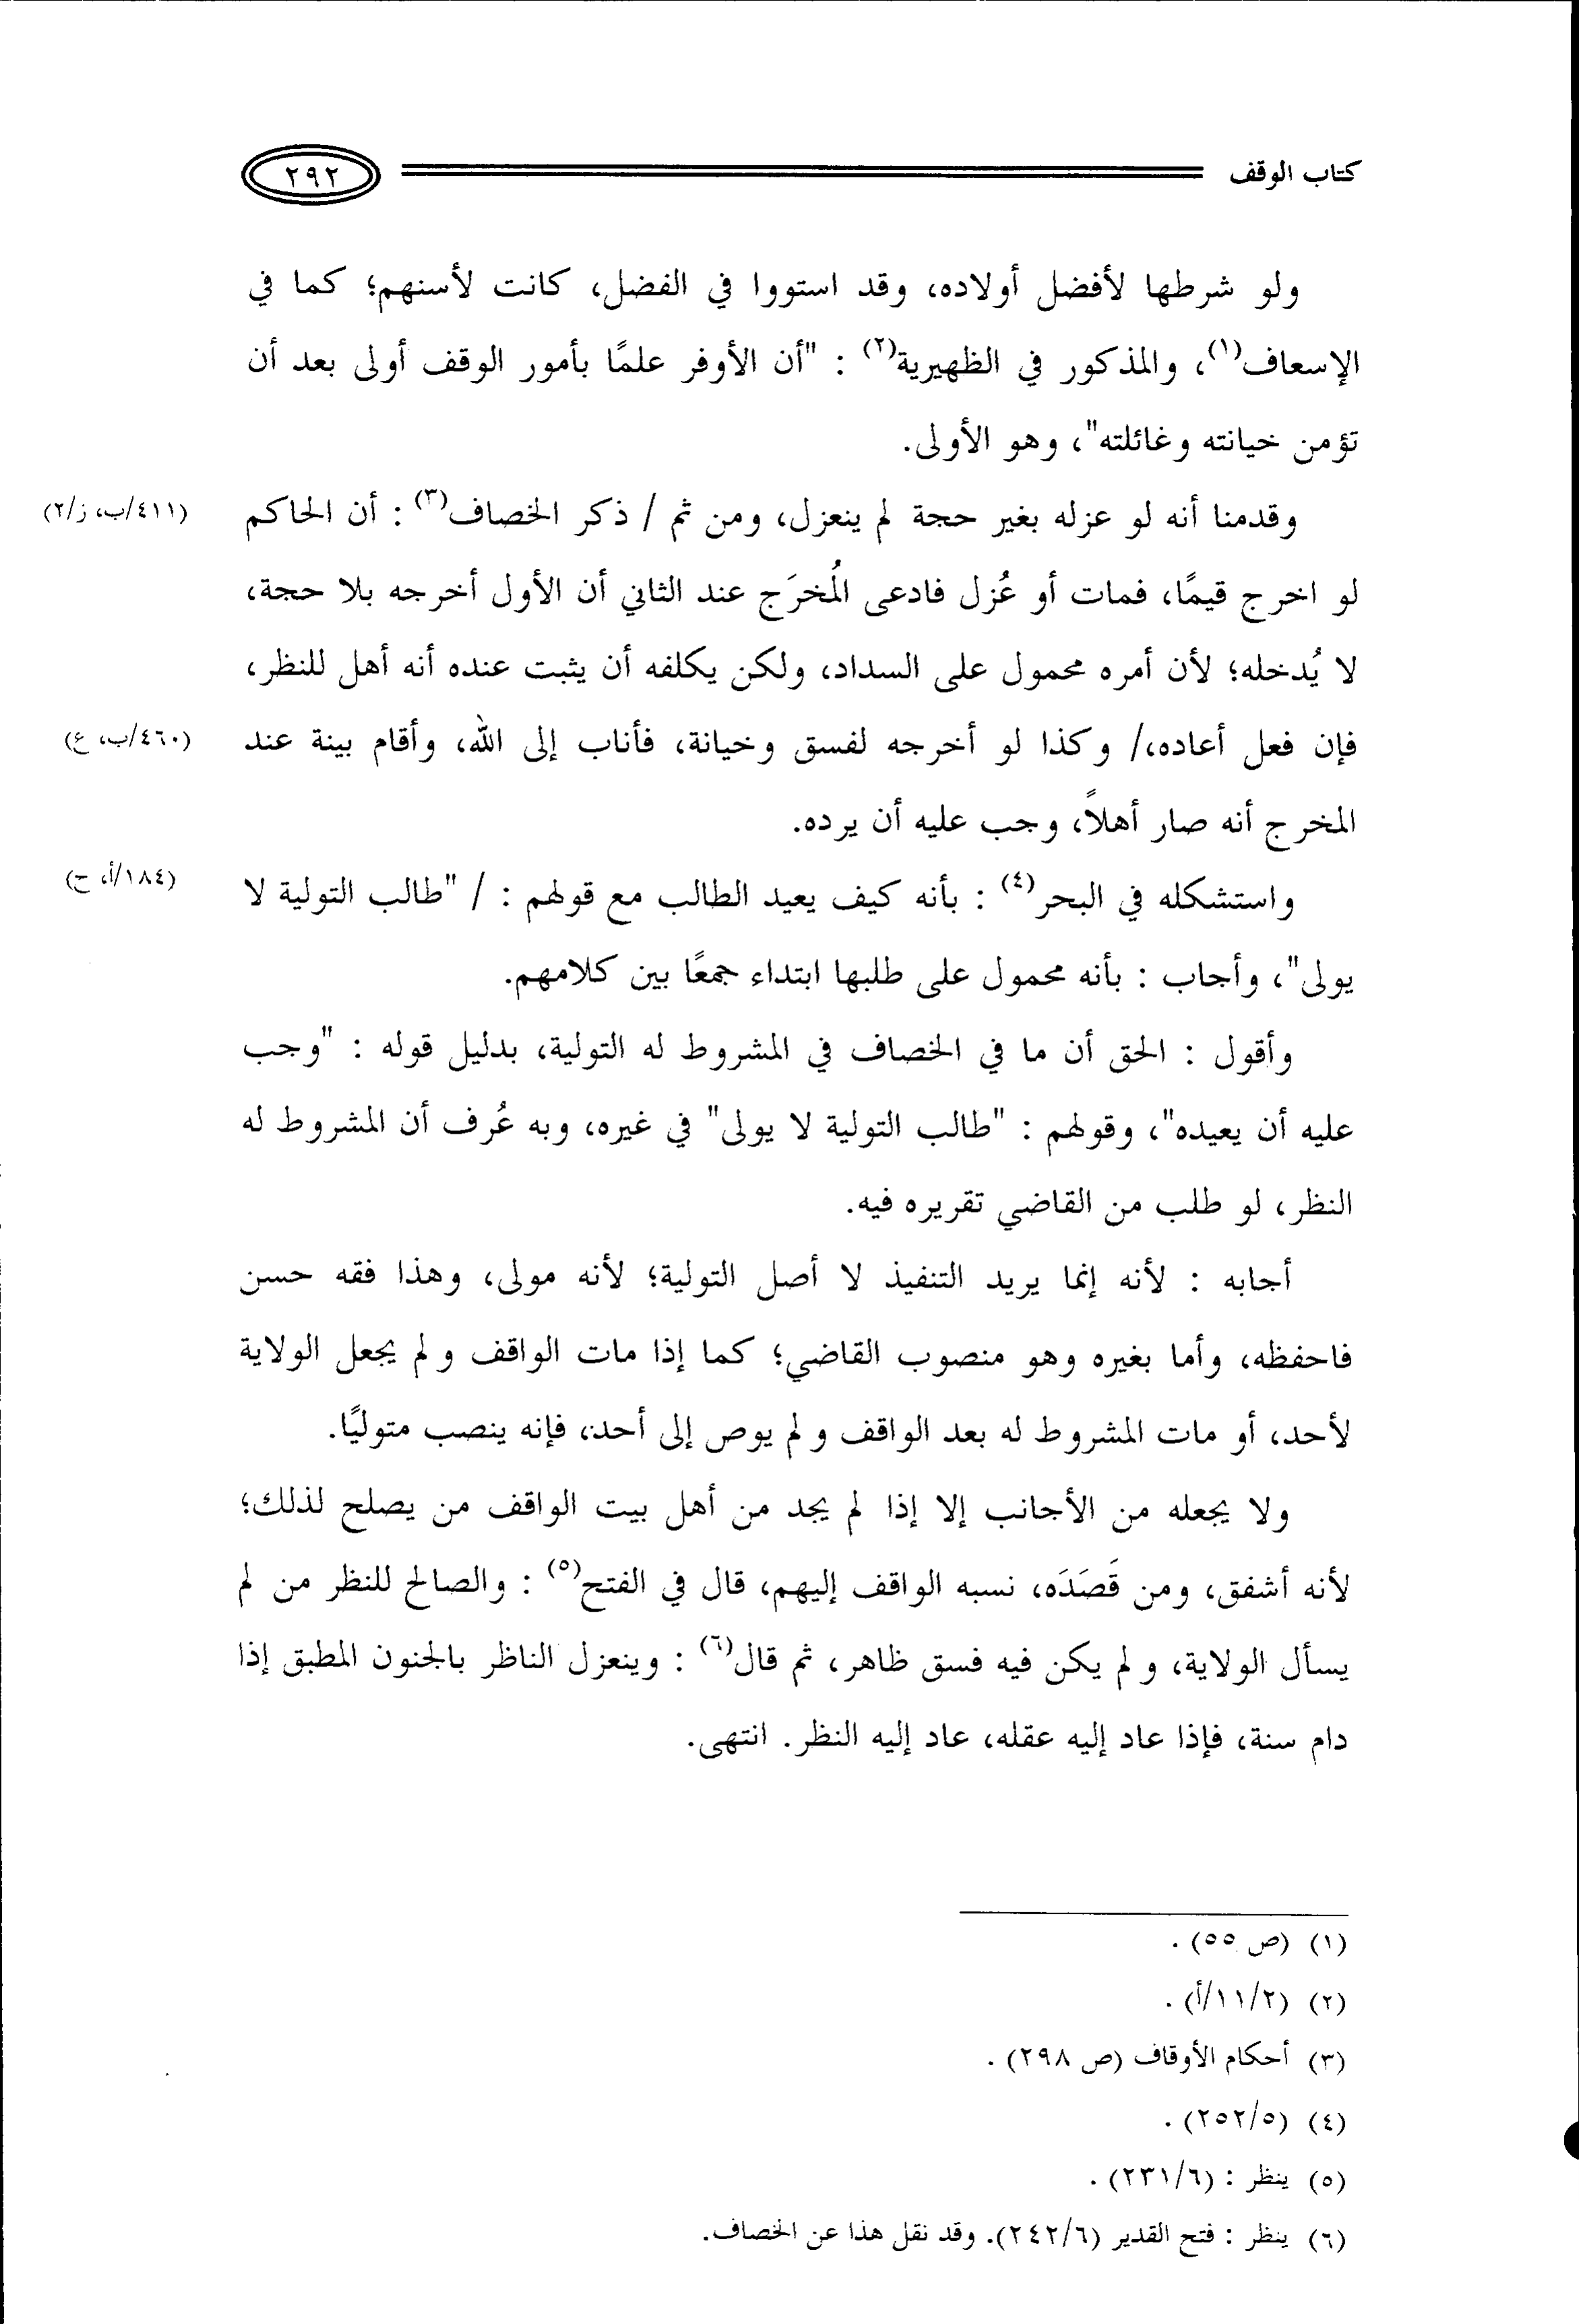 كتاب الوقف ٢٩٢
ولو شرطها لأفضل أولاده، وقد استووا في الفضل، كانت لأسنهم؛ كما في
الإسعاف(١)، والمذكور في الظهيرية(٢) : "أن الأوفر علمًا بأمور الوقف أولى بعد أن
تؤمن خيانته وغائلته"، وهو الأولى.
وقدمنا أنه لو عزله بغير حجة لم ينعزل، ومن ثم / ذكر الخصاف(٣) : أن الحاكم (٤١١/ب، ز/٢)
لو اخرج قيمًا، فمات أو عُزل فادعى المُخرَج عند الثاني أن الأول أخرجه بلا حجة،
لا يُدخله؛ لأن أمره محمول على السداد، ولكن يكلفه أن يثبت عنده أنه أهل للنظر،
فإن فعل أعاده،/ وكذا لو أخرجه لفسق وخيانة، فأناب إلى الله، وأقام بينة عند (٤٦٠/ب، ع)
المخرج أنه صار أهلاً، وجب عليه أن يرده.
واستشكله في البحر(٤) : بأنه كيف يعيد الطالب مع قولهم : / "طالب التولية لا (١٨٤/أ، ح)
يولى"، وأجاب : بأنه محمول على طلبها ابتداء جمعًا بين كلامهم.
وأقول : الحق أن ما في الخصاف في المشروط له التولية، بدليل قوله : "وجب
عليه أن يعيده"، وقولهم : "طالب التولية لا يولى" في غيره، وبه عُرف أن المشروط له
النظر، لو طلب من القاضي تقريره فيه.
أجابه : لأنه إنما يريد التنفيذ لا أصل التولية؛ لأنه مولى، وهذا فقه حسن
فاحفظه، وأما بغيره وهو منصوب القاضي؛ كما إذا مات الواقف ولم يجعل الولاية
لأحد، أو مات المشروط له بعد الواقف ولم يوص إلى أحد، فإنه ينصب متوليًا.
ولا يجعله من الأجانب إلا إذا لم يجد من أهل بيت الواقف من يصلح لذلك؛
لأنه أشفق، ومن قَصَدَه، نسبه الواقف إليهم، قال في الفتح(٥) : والصالح للنظر من لم
يسأل الولاية، ولم يكن فيه فسق ظاهر، ثم قال(٦) : وينعزل الناظر بالجنون المطبق إذا
دام سنة، فإذا عاد إليه عقله، عاد إليه النظر. انتهى.
(١) (ص ٥٥) .
(٢) (١١/٢/أ) .
(٣) أحكام الأوقاف (ص ٢٩٨) .
(٤) (٢٥٢/٥) .
(٥) ينظر : (٢٣١/٦) .
(٦) ينظر : فتح القدير (٢٤٢/٦). وقد نقل هذا عن الخصاف.